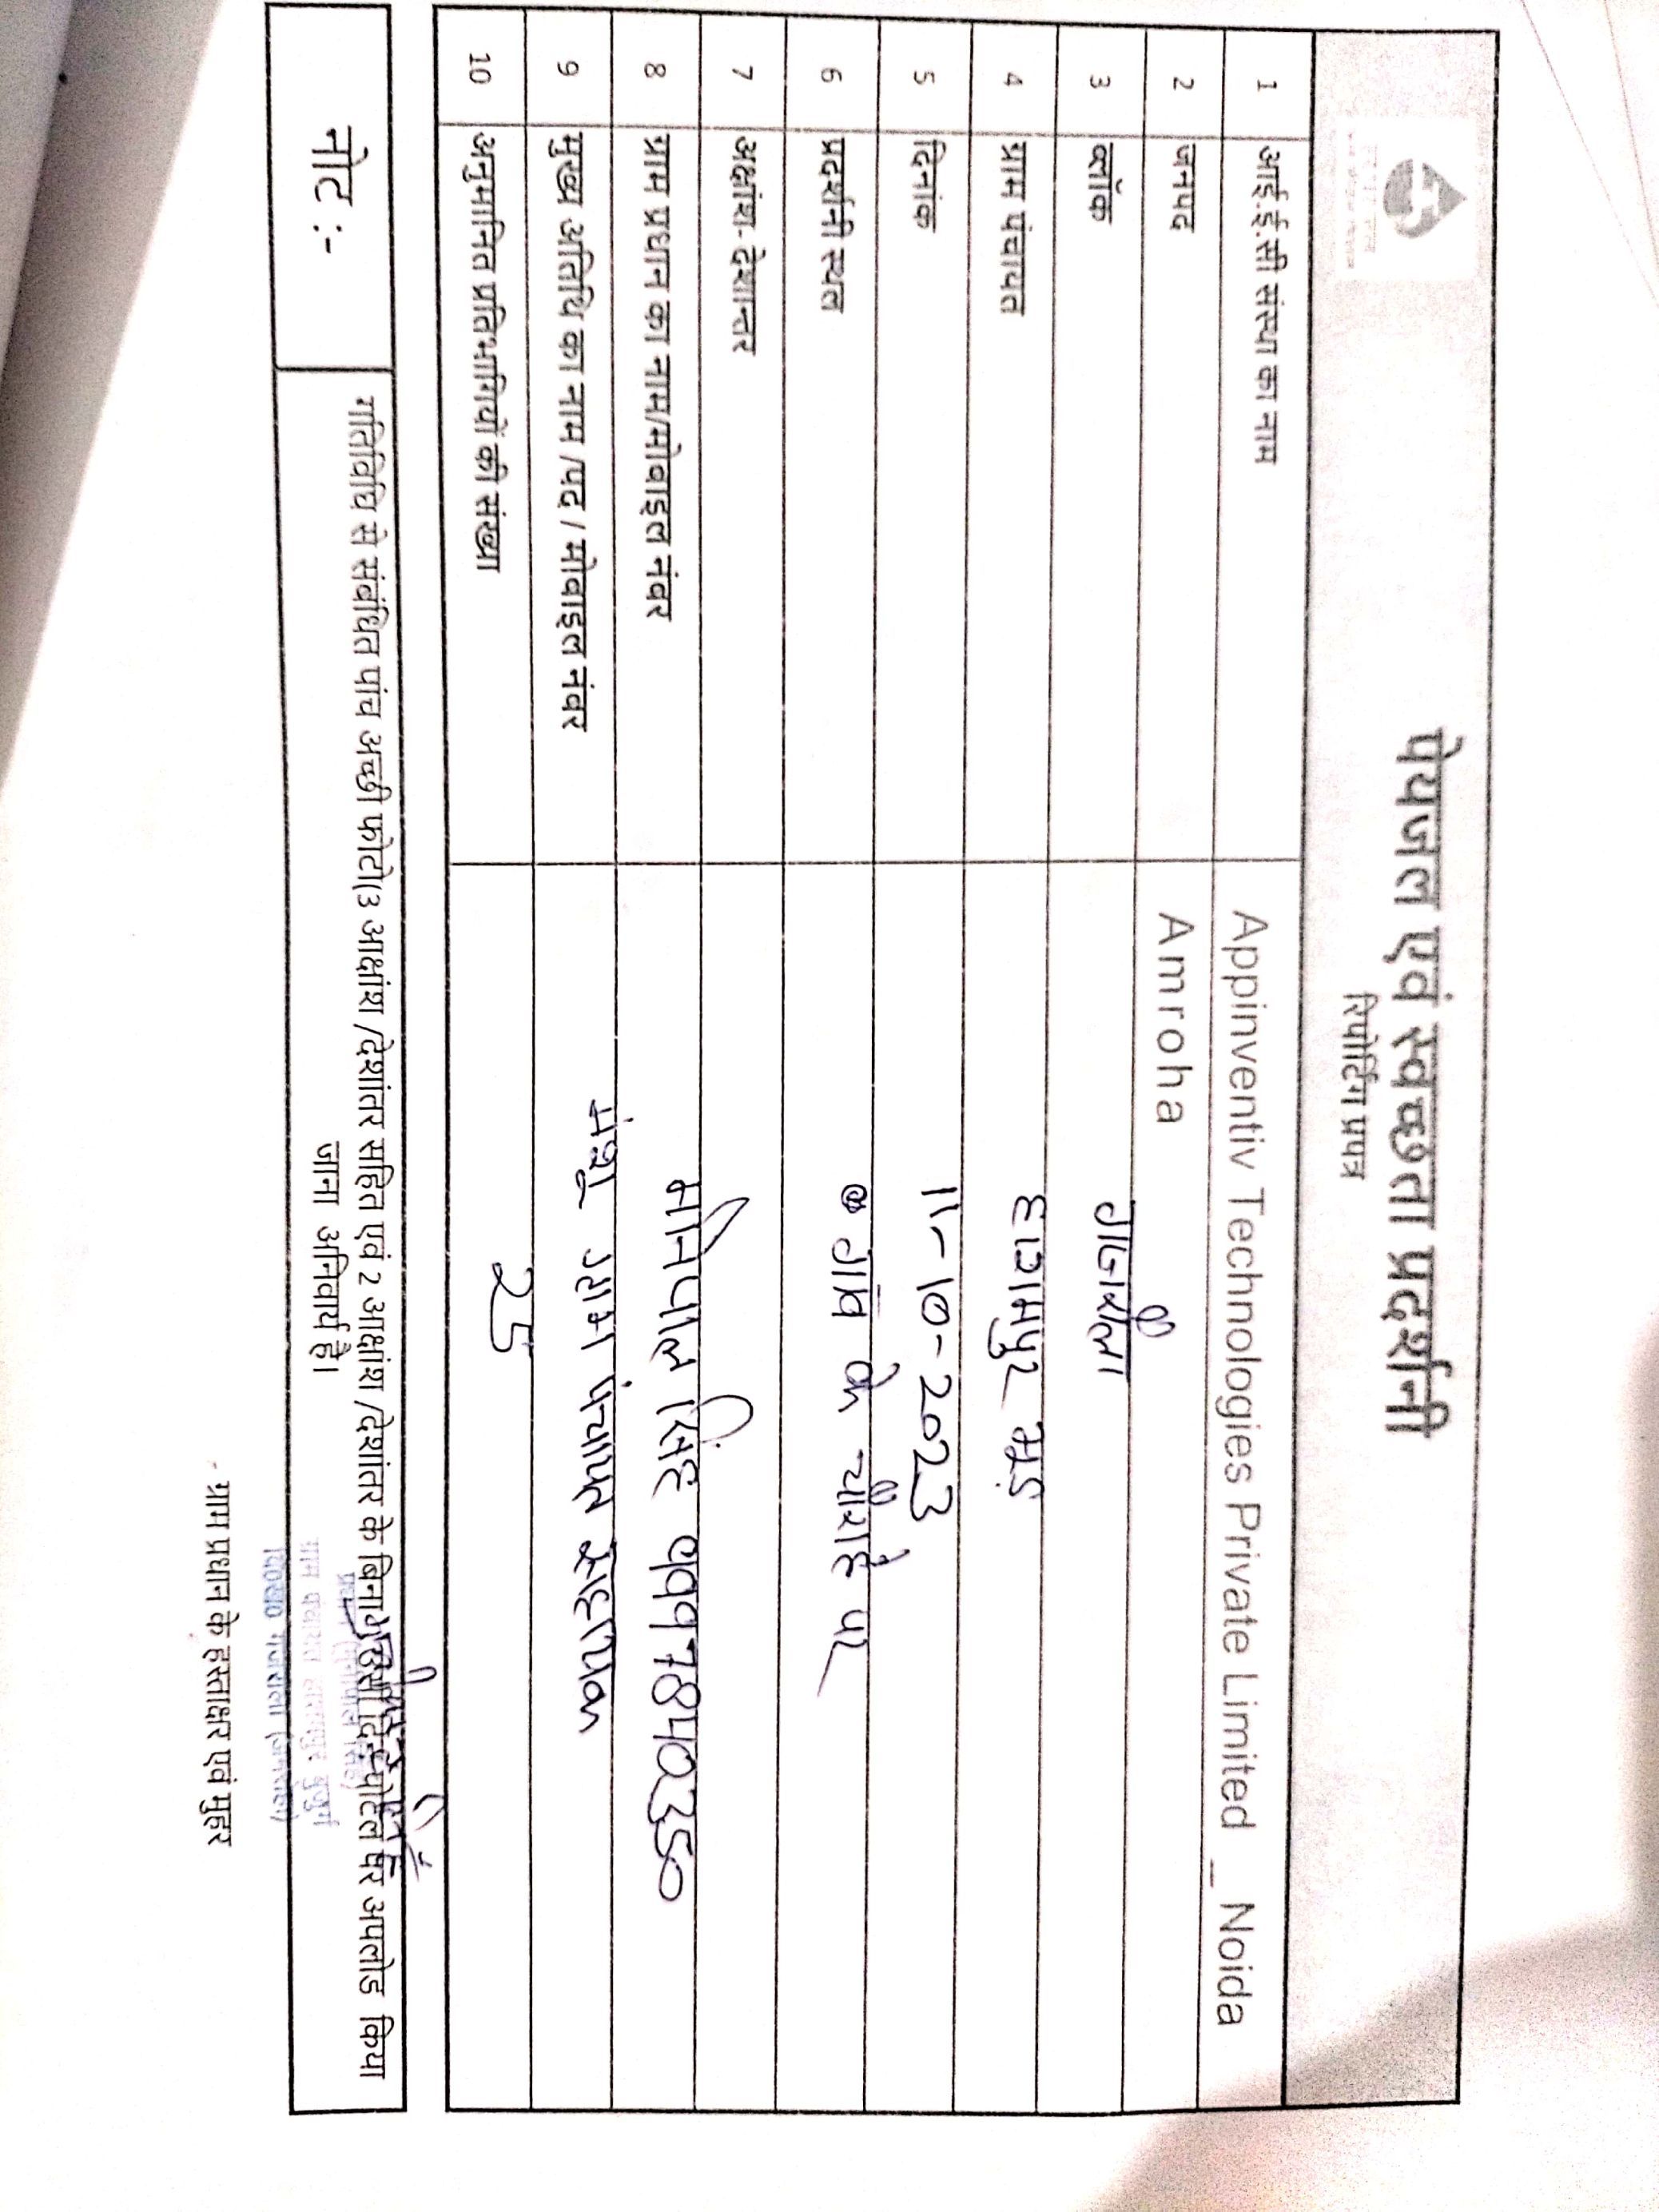 पेयजल एवं स्वच्छता प्रदर्शनी
रिपोर्टिंग प्रपत्र
1 आई.ई.सी संस्था का नाम Appinventiv Technologies Private Limited _ Noida
2 जनपद Amroha
3 ब्लॉक गजरौला
4 ग्राम पंचायत
5 दिनांक 11-10-2023
6 प्रदर्शनी स्थल गांव के चौराहे पर
7 अक्षांश-देशान्तर
8 ग्राम प्रधान का नाम/मोबाइल नंबर सिंह
9 मुख्य अतिथि का नाम /पद / मोबाइल नंबर पंचायत
10 अनुमानित प्रतिभागियों की संख्या 25
नोट :- गतिविधि से संबंधित पांच अच्छी फोटो(3 आक्षांश /देशांतर सहित एवं 2 आक्षांश /देशांतर के बिना पोर्टल पर अपलोड किया
जाना अनिवार्य है।
ग्राम प्रधान के हस्ताक्षर एवं मुहर